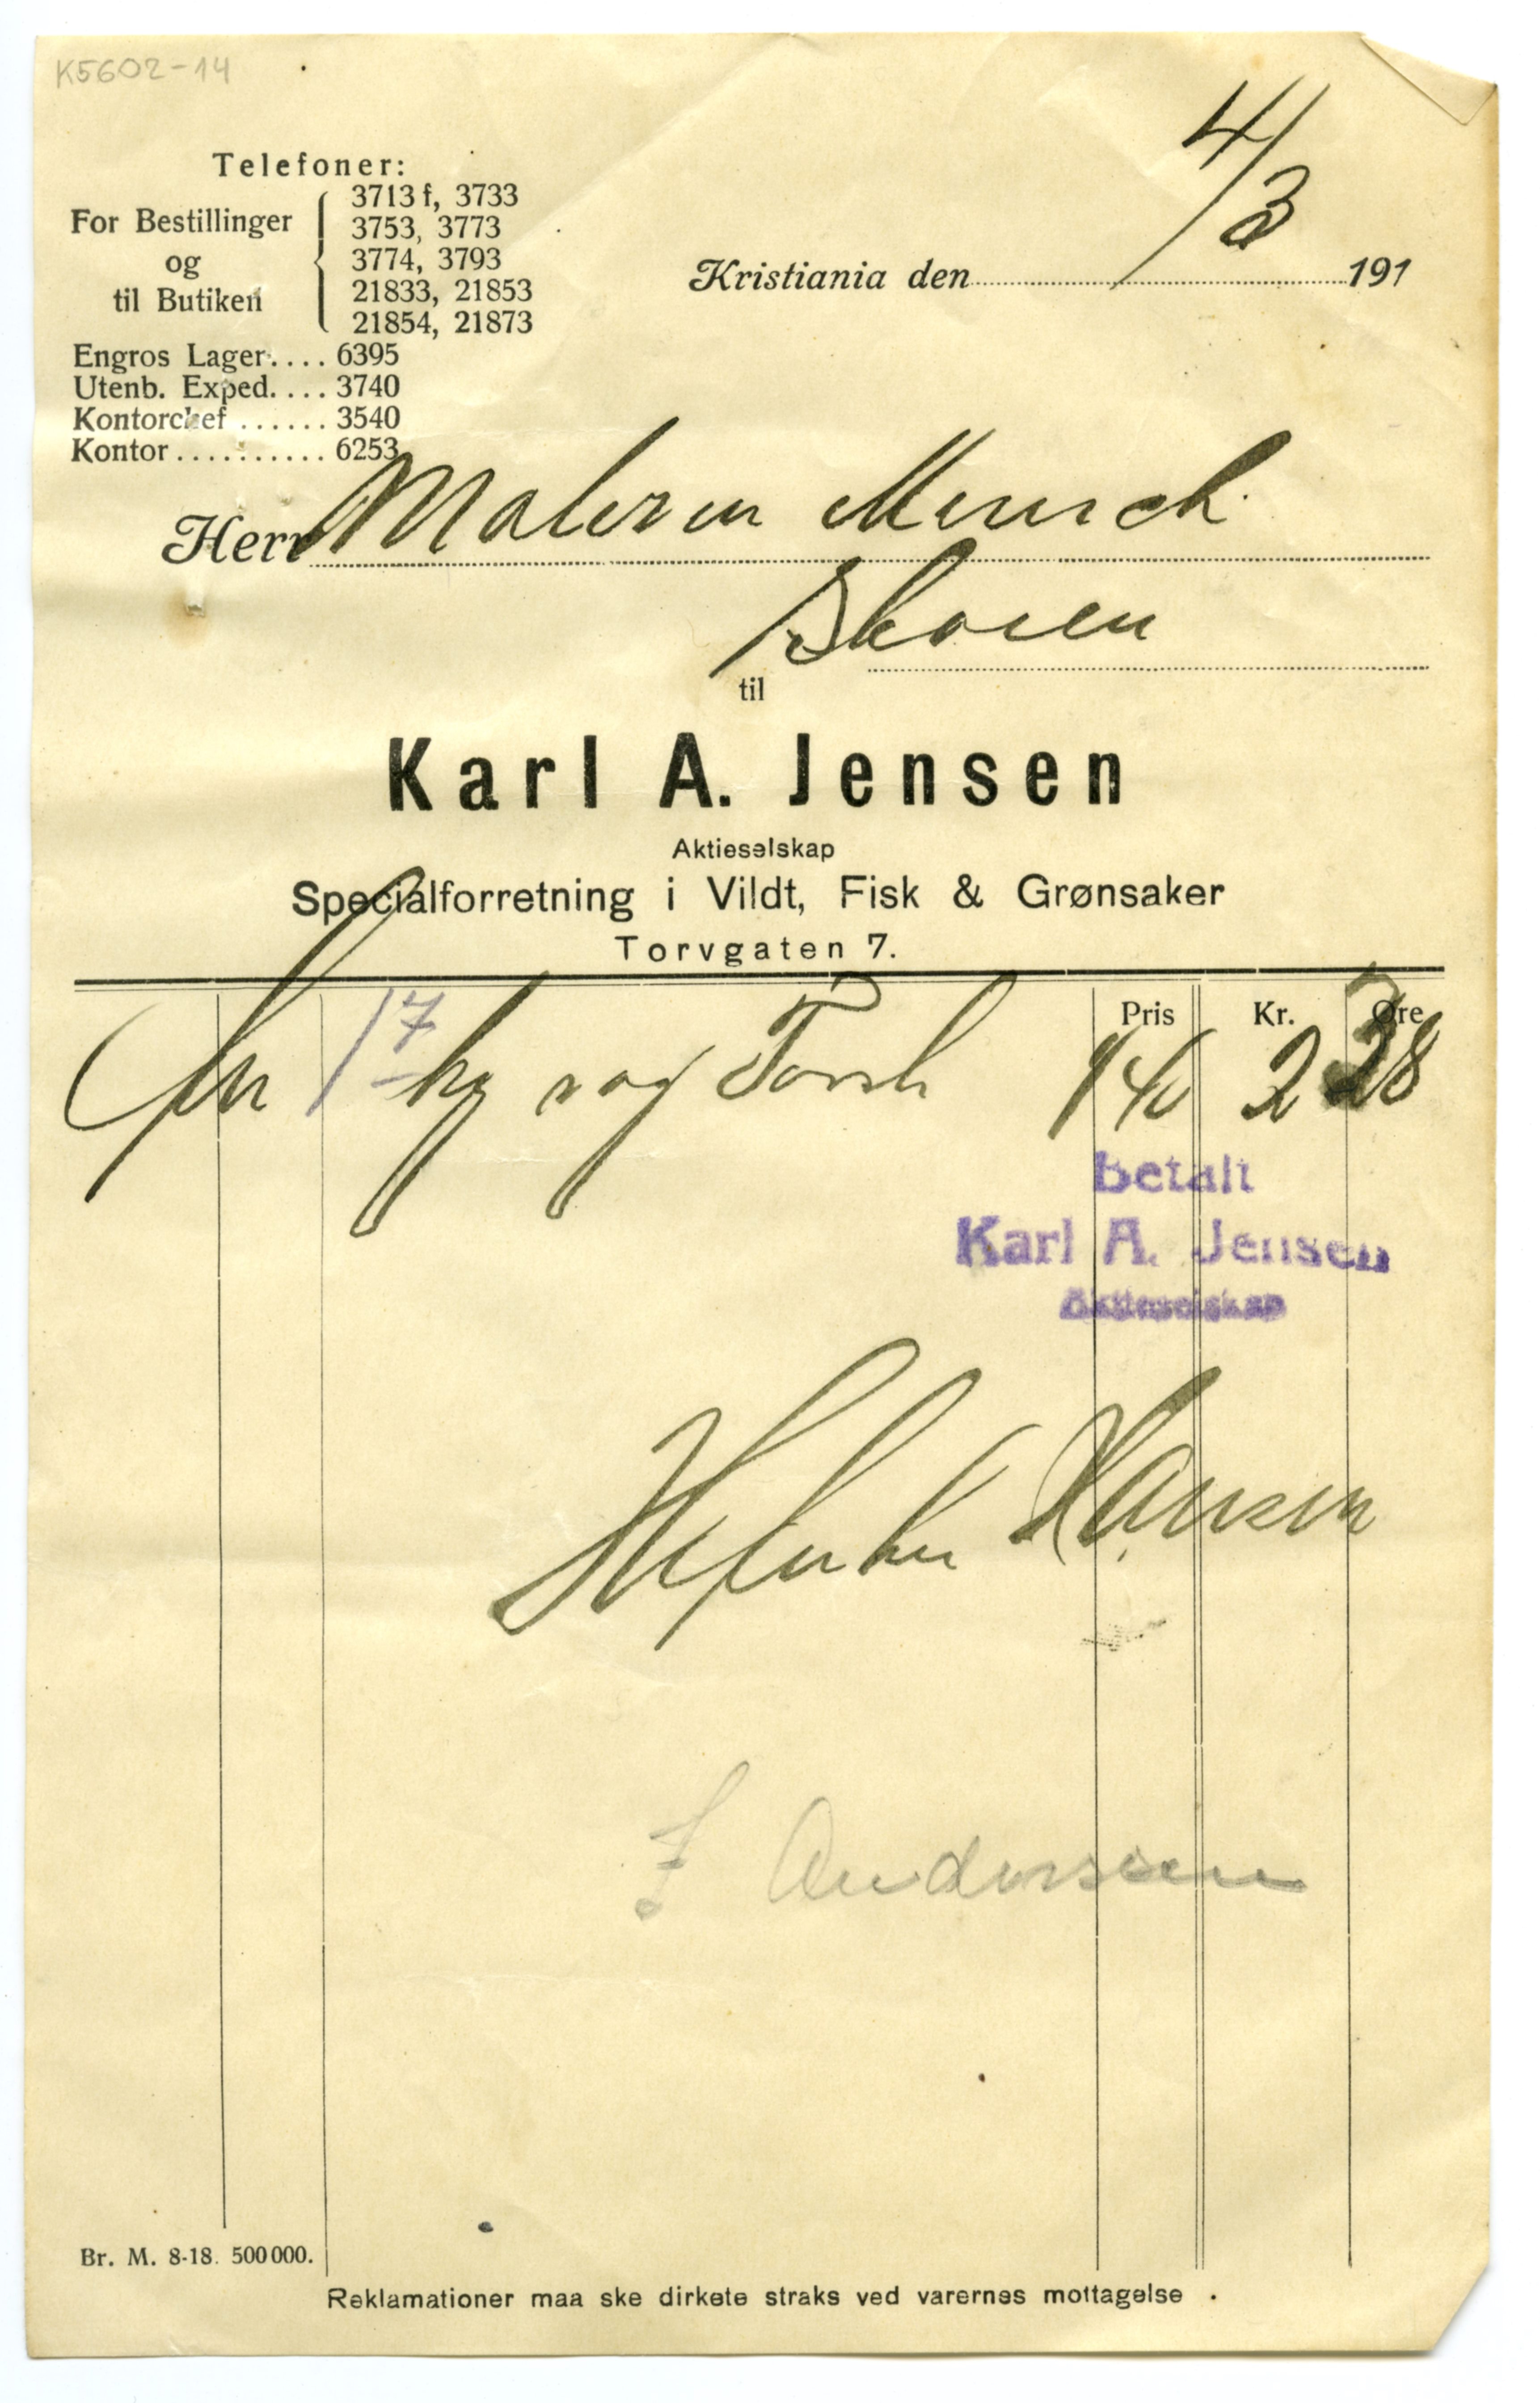 K5602-14
4/3
Telefoner:
For Bestillinger og til Butiken
3713 f, 3733
3753, 3773
3774, 3793
21833, 21853
21854, 21873
Engros Lager.... 6395
Utenb. Exped.... 3740
Kontorchef ...... 3540
Kontor .......... 6253
Kristiania den 191
Herr Maleren Munch
Skøien
til
Karl A. Jensen
Aktieselskap
Specialforretning i Vildt, Fisk & Grønsaker
Torvgaten 7.
Pris Kr. Øre
17 kg Torsk 140 2 38
Betalt
Karl A. Jensen
Aktieselskap
Hansen
Anderssen
Br. M. 8-18. 500 000.
Reklamationer maa ske dirkete straks ved varernes mottagelse .